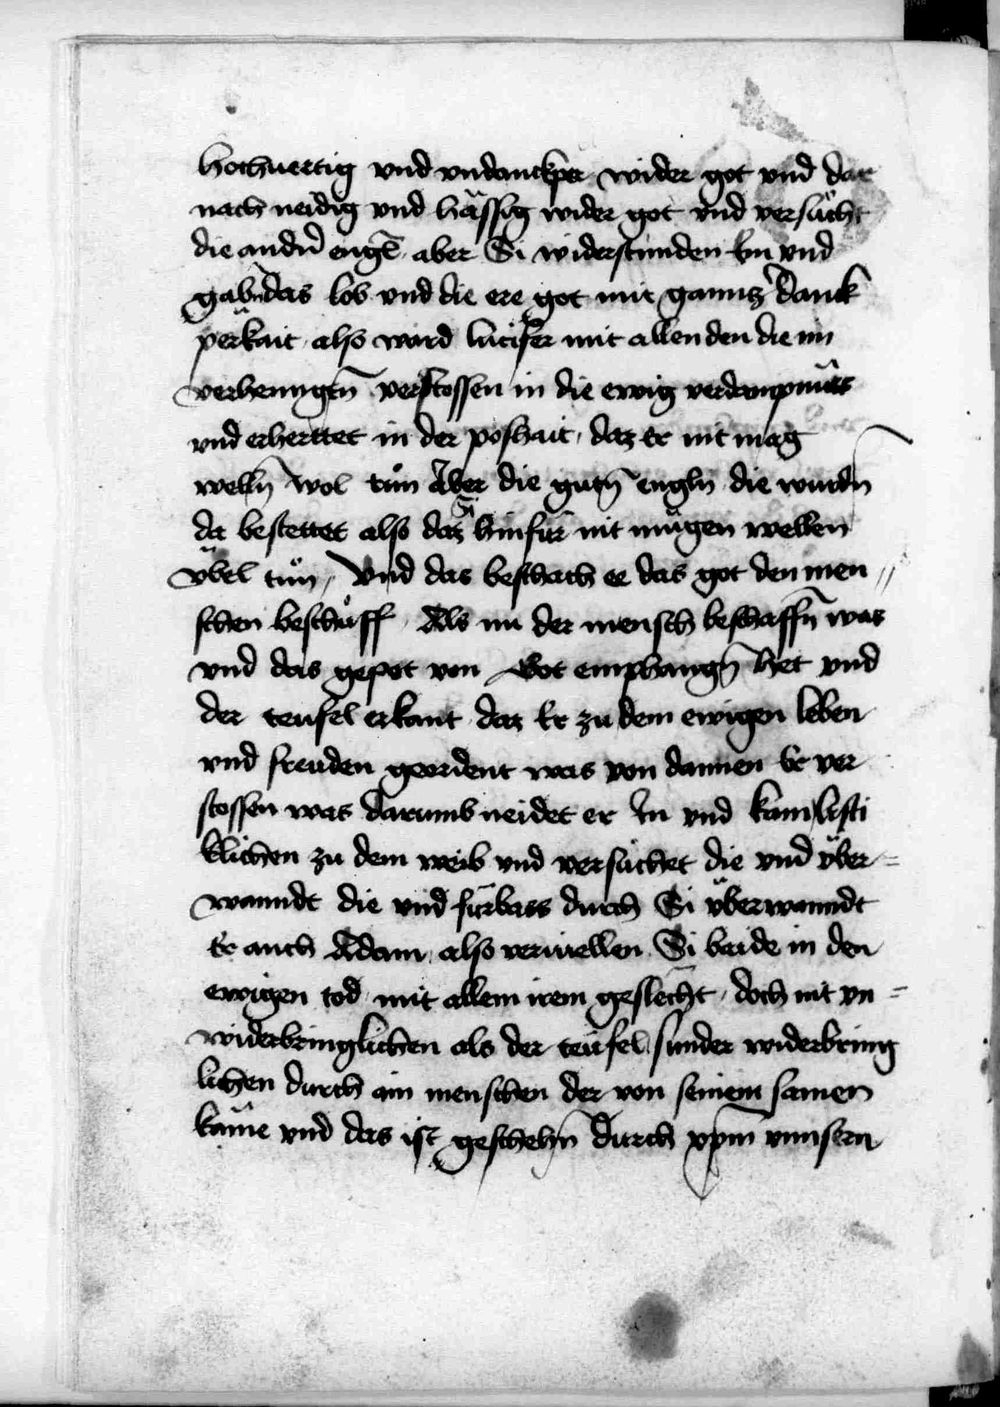 hochuertig vnd vndanckper wider got vnd dar
nach neidig vnd hässig wider got vnd versücht
die andn̄ engl̄ aber Si widerstunden Im vnd
gabn̄ das lob vnd die ere got mit ganncz̄ danck
perkait also ward lucifer mit allen den die im
verhenngtn̄ verstossen in die ewig verdampnüss
vnd erherttet in der poshait, daz Er nit mag
welln̄ wol tün Aber die gutn̄ engln̄ die wurdn̄
da bestettet also daz Si hinfür nit mügen wellen
übel tün, Vnd das beschach ee das got den men
schen beschüff Als nu der mensch beschaffn̄ was
vnd das gepot von Got emphangn̄ het vnd
der teufel erkant daz Er zu dem ewigen leben
vnd freuden geordent was von dannen Er ver
stossen was darumb neidet er In vnd kam listi
klichen zu dem weib vnd versüchet die vnd über=
wanndt die vnd fürbass durch Si überwanndt
Er auch Adam, also verviellen Si baide in den
ewigen tod mit allem irem geslächt, doch nit vn=
widerbringlichen als der teufel, sunder widerbring
lichen durch ain menschen der von seinem samen
käme vnd das ist geschehn̄ durch xpm̄ vnnsern